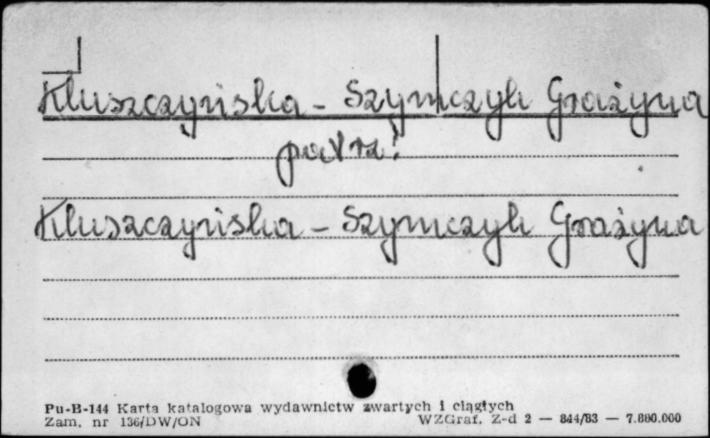 Kluszczyńska - Szymczyk Grażyna
patrz:
Kluszczyńska - Szymczyk Grażyna
Pu-B-144 Karta katalogowa wydawnictw zwartych i ciągłych
Zam. nr 136/DW/ON WZGraf. Z-d 2 — 844/83 — 7.880.000